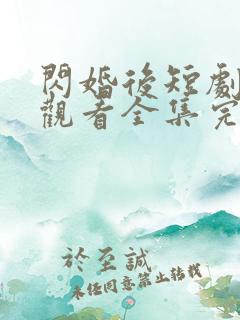 閃婚後短劇
觀看全集完
於至誠
未任同意禁止転載